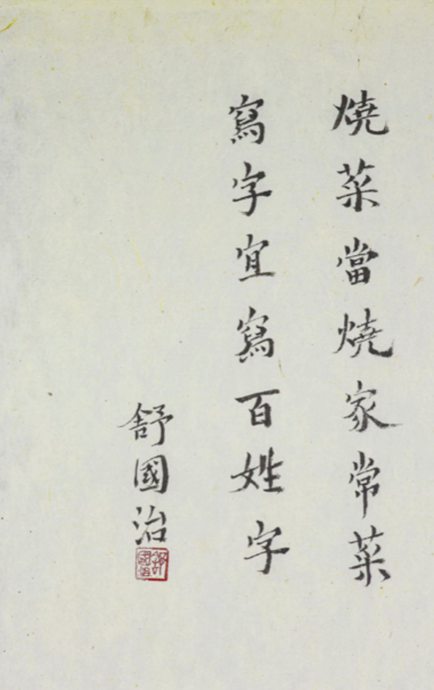 燒菜當燒家常菜
寫字宜寫百姓字
舒國治